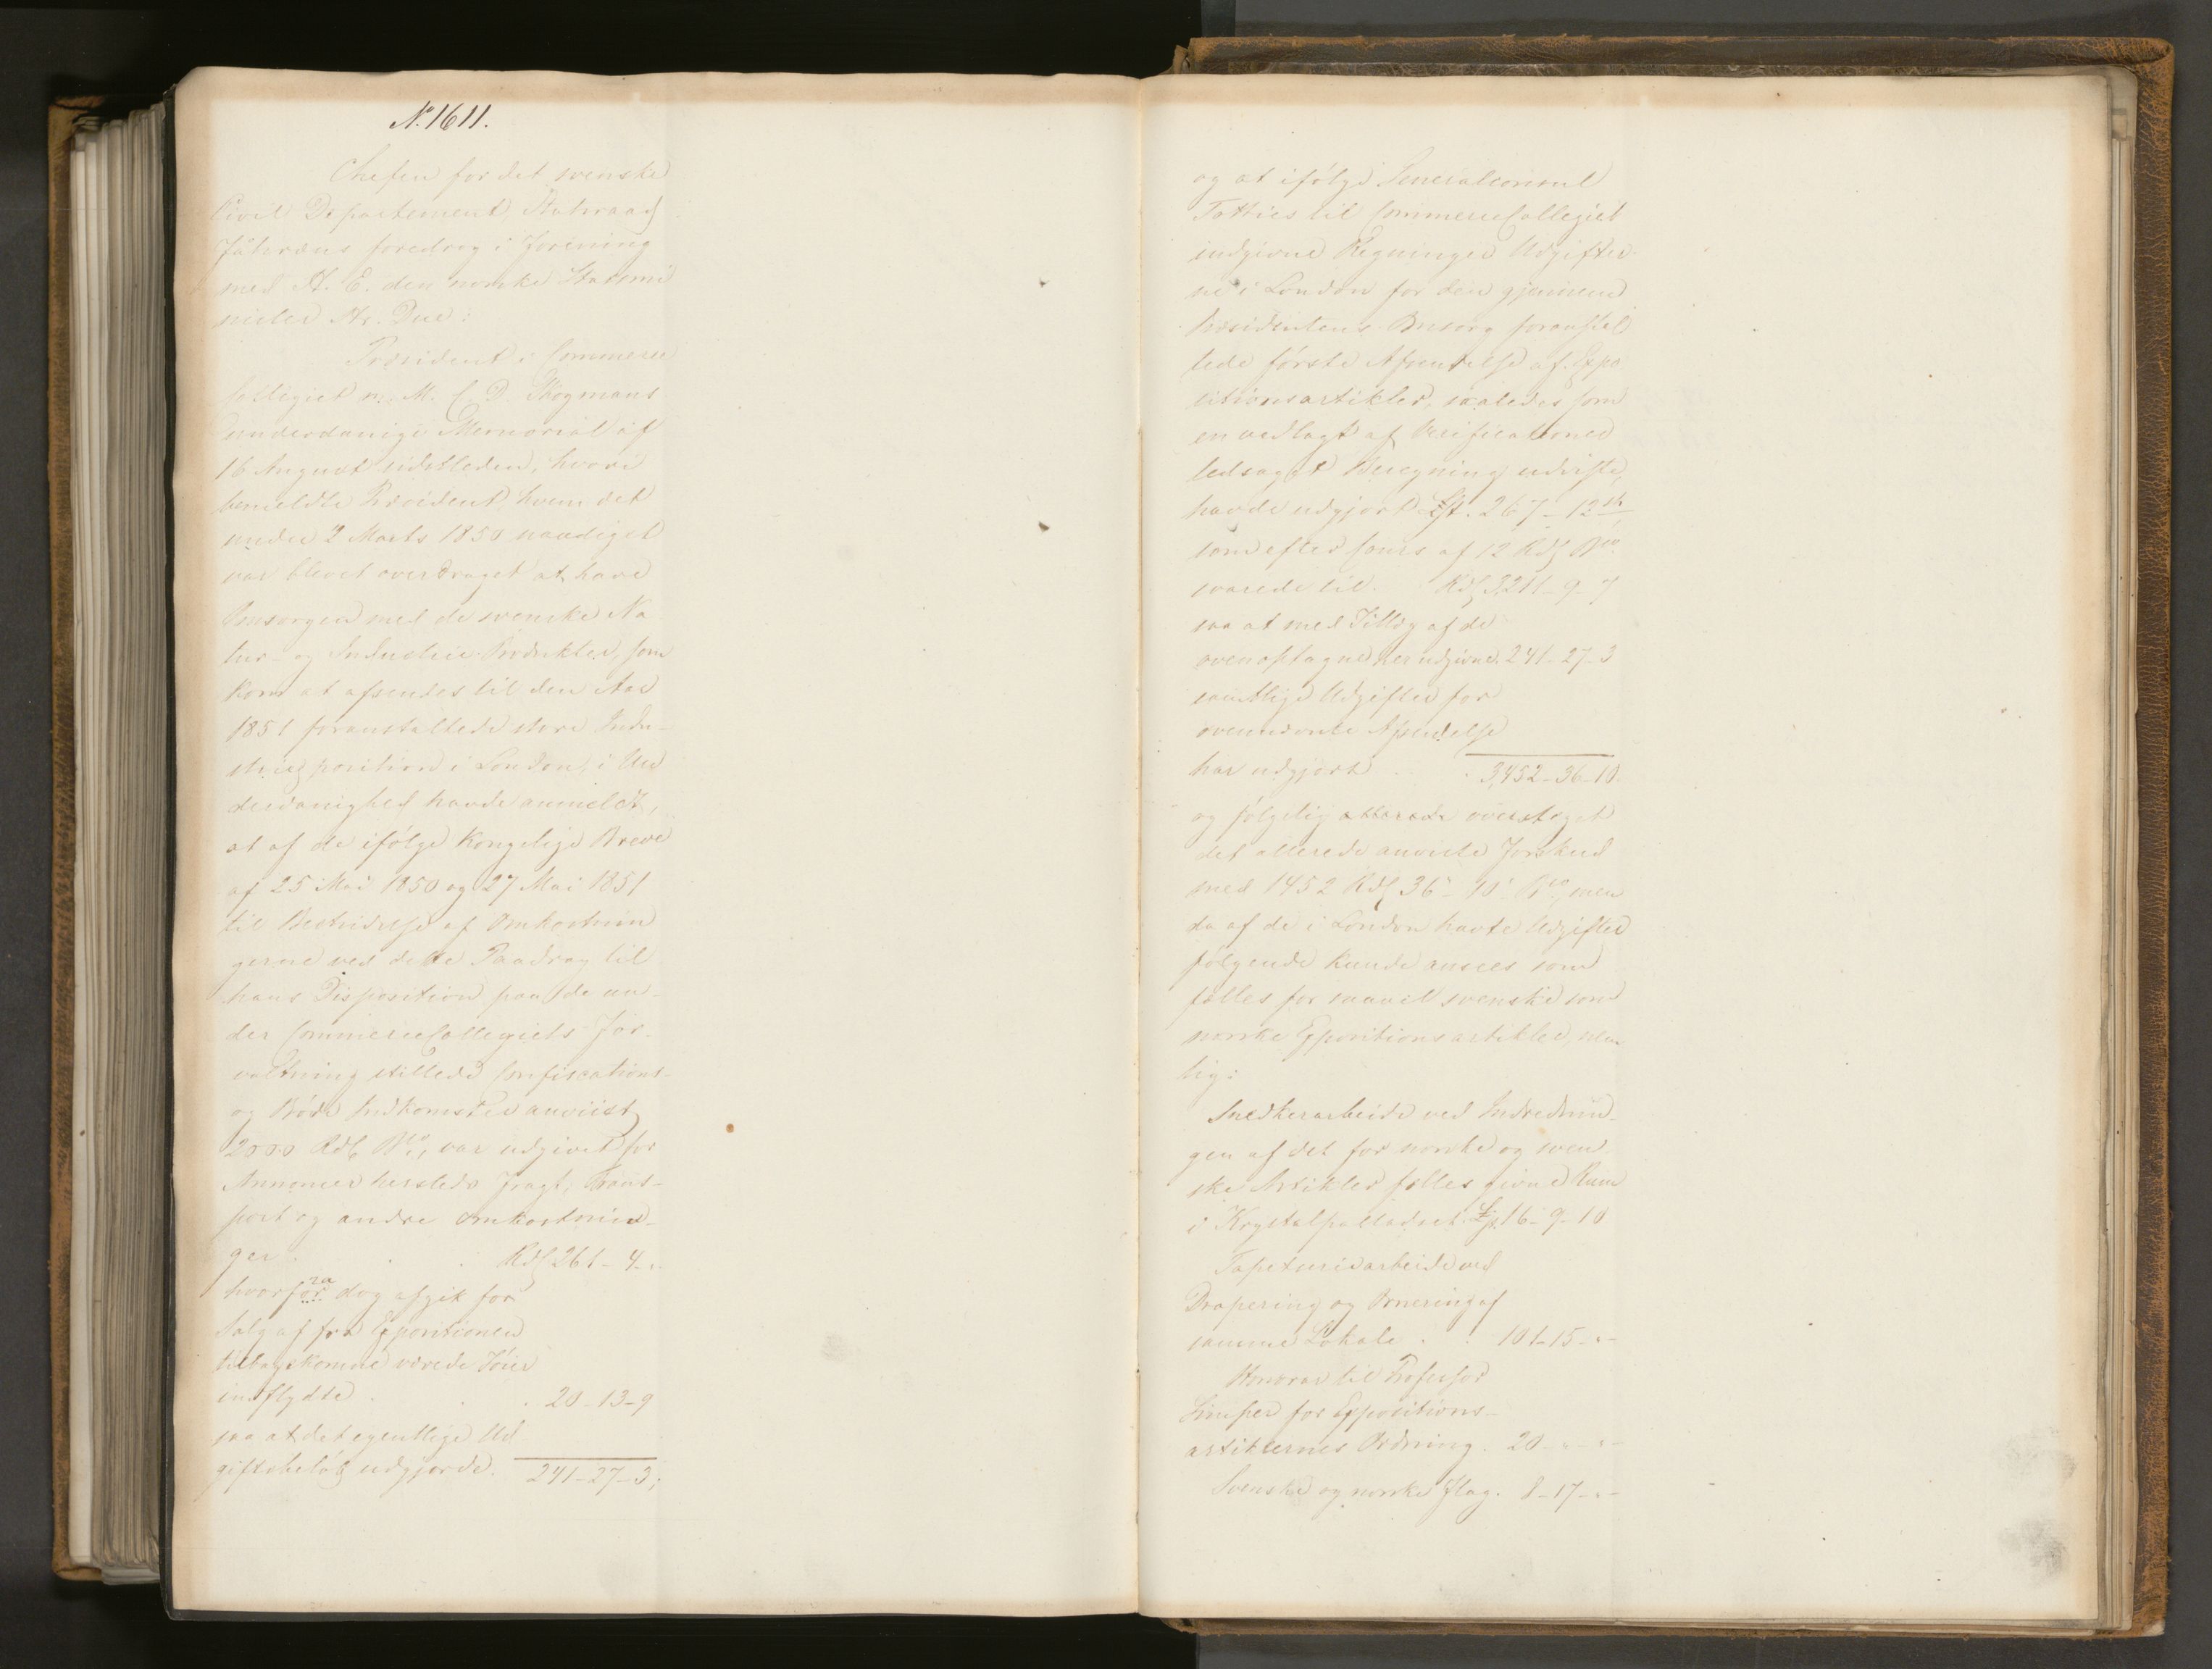 No. 1611.
Chefen for det svenske
Civil Departement, Statsraad
Fåhræus foredrog i Forening
med H. E. den norske Statsmi
nister Hr. Due:
Præsident i Commerce
Collegiet m. M. C. D. Skogmans
underdanige Memorial af
16 August sidstleden, hvori
bemeldte Præsident, hvem det
under 2 Marts 1850 naadigst
var blevet overdraget at have
Omsorgen med de svenske Na
tur- og Industrie Produkter, som
kom at afsendes til den Aar
1851 foranstaltede store Indu-
strieexposition i London, i Un
derdanighed havde anmeldt,
at af de ifölge Kongelige Breve
af 25 Mai 1850 og 27 Mai 1851
til Bestridelse af Omkostnin
gerne ved dette Paadrag til
hans Disposition paa de un-
der CommerceCollegiets For-
valtning stillede Confiscations-
og Böde Indkomster anviist
2000 Rdl Bco, var udgivet for
Annoncer hersteds Fragt, Trans-
port og andre Omkostnin-
ger . . . Rdl 261-4-"
hvorfra dog afgik for
Salg af fra Expositionen
tilbagekomne værede Töier
indflydte . . . 20-13-9
saa at det egentlige Ud
giftsbelöb udgjorde. 241-27-3;
og at ifölge Generalconsul
Totties til CommerceCollegiet
indgivne Regninger Udgifter-
ne i London for den gjennem
Præsidentens Omsorg foranstal
tede förste Afsendelse af Expo
sitionsartikler, saaledes som
en vedlagt af Verificationer
ledsaget Beregning udviste,
havde udgjort L St. 267-12 sh
som efter Cours af 12 Rdl Bco
svarede til. Rdl 3,211-9-7
saa at med Tillæg af de
ovenoptagne her udgivne. 241-27-3
samtlige Udgifter for
ovennævnte Afsendelse
har udgjort . . . 3,452-36-10.
og fölgelig allerede oversteget
det allerede anviste Forskud
med 1452 Rdl 36-10 Bco, men
da af de i London havte Udgifter
fölgende kunde ansees som
fælles for saavel svenske som
norske Expositionsartikler, nem
lig:
Snedkerarbeide ved Indrednin-
gen af det for norske og sven
ske Artikler fælles givne Rum
i Krystalpalladset. L St. 16-9-10
Tapetsereerarbeide ved
Drapering og Ornering af
samme Lokale . . 101-15-"-
Honorar til Professor
for Expositions-
artiklernes Ordning. 20-"-"-
Svenske og norske Flag. 8-17-"-